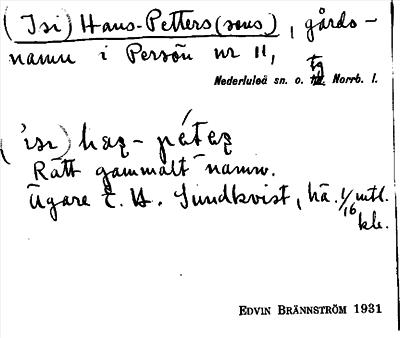 (Isi) Hans-Petters (sons), gårds-
namn i Persön nr 11,
Nederluleå sn. o. tg Norrb. l.
('isi) haʂ- péteʂ
Rätt gammalt namn.
Ägare E. H. Sundkvist, hä. 1/16 mtl.
kle.
EDVIN BRÄNNSTRÖM 1931